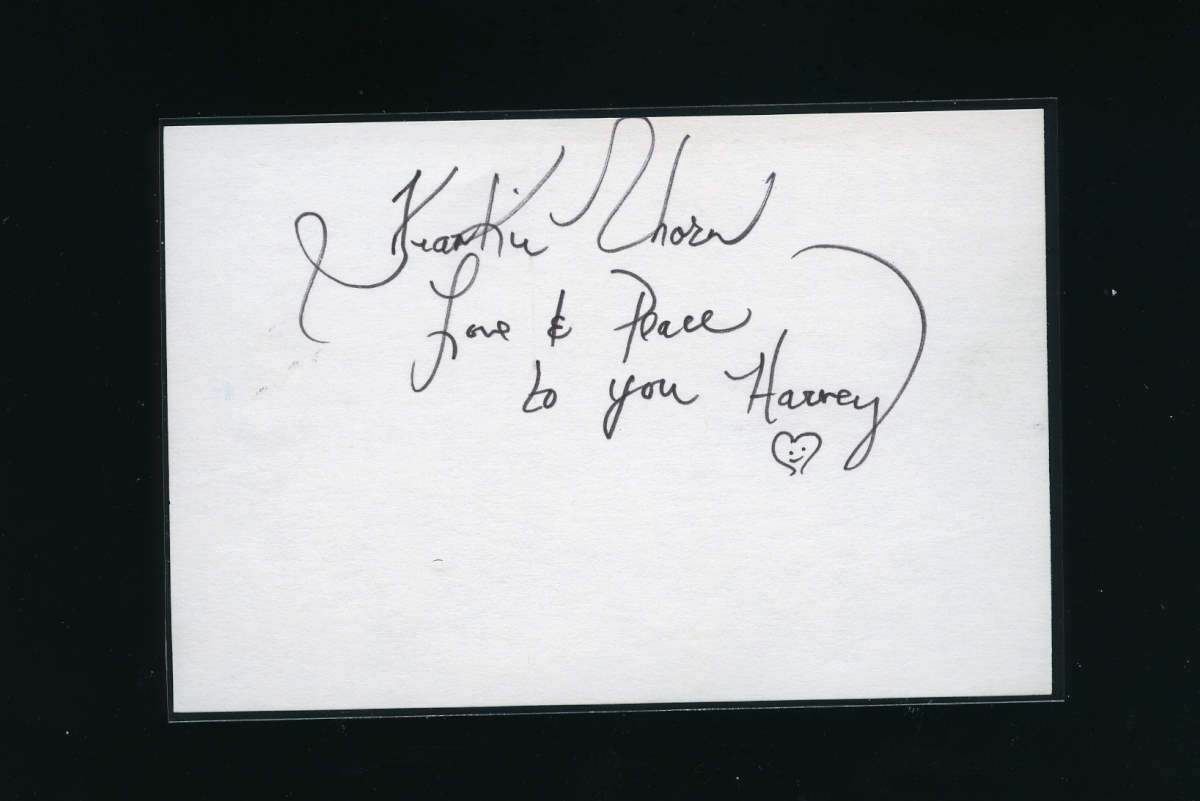 Frankie Thorn
Love & Peace
to you Harvey